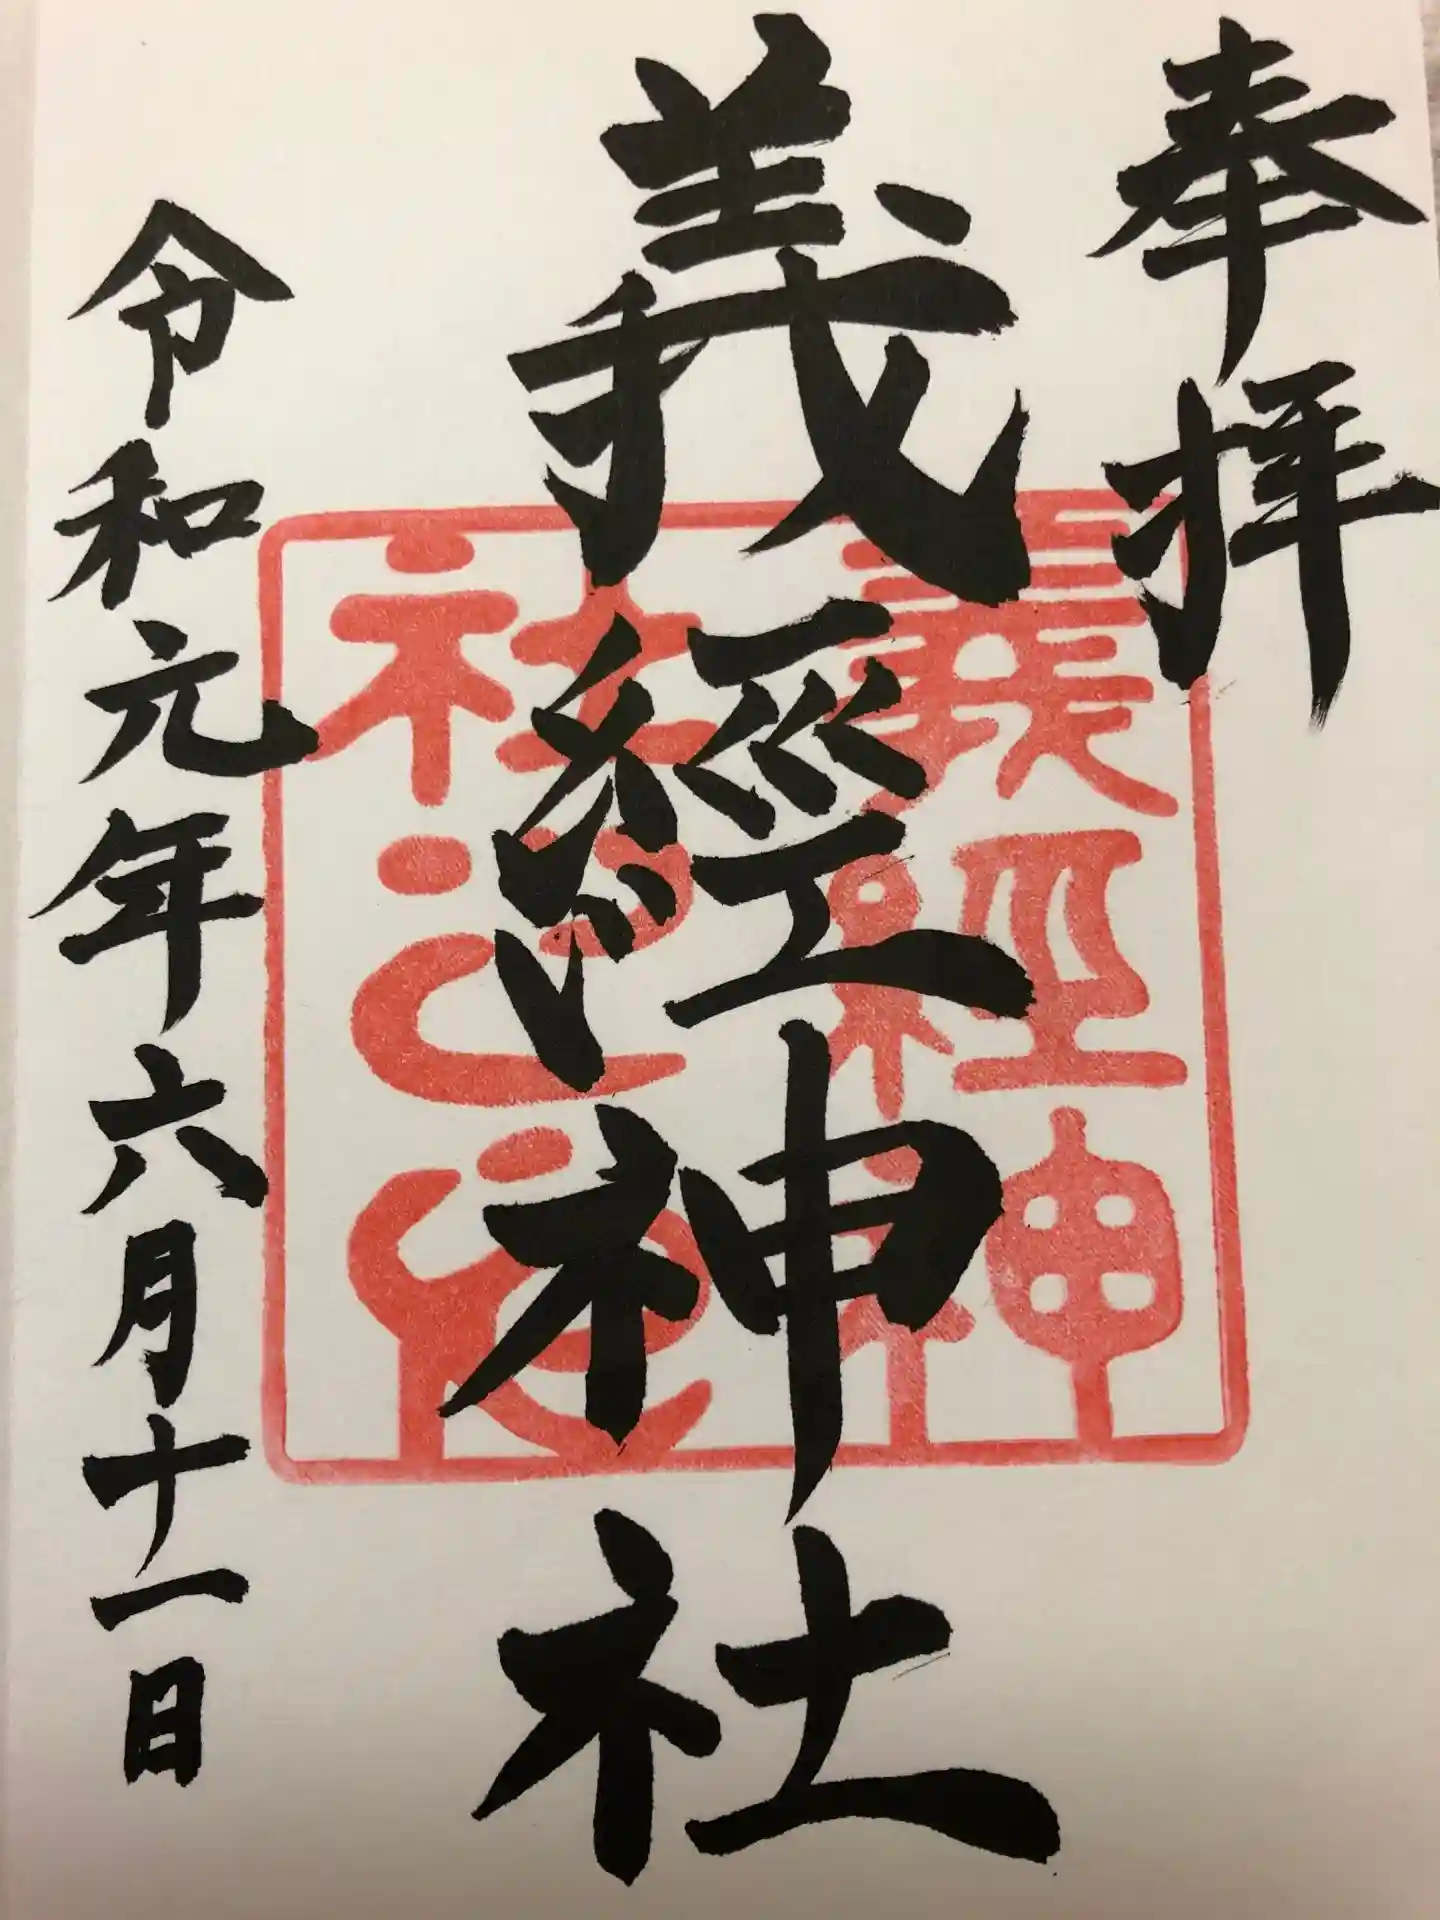 奉拝
義經神社
義経神
社之印
令和元年六月十一日